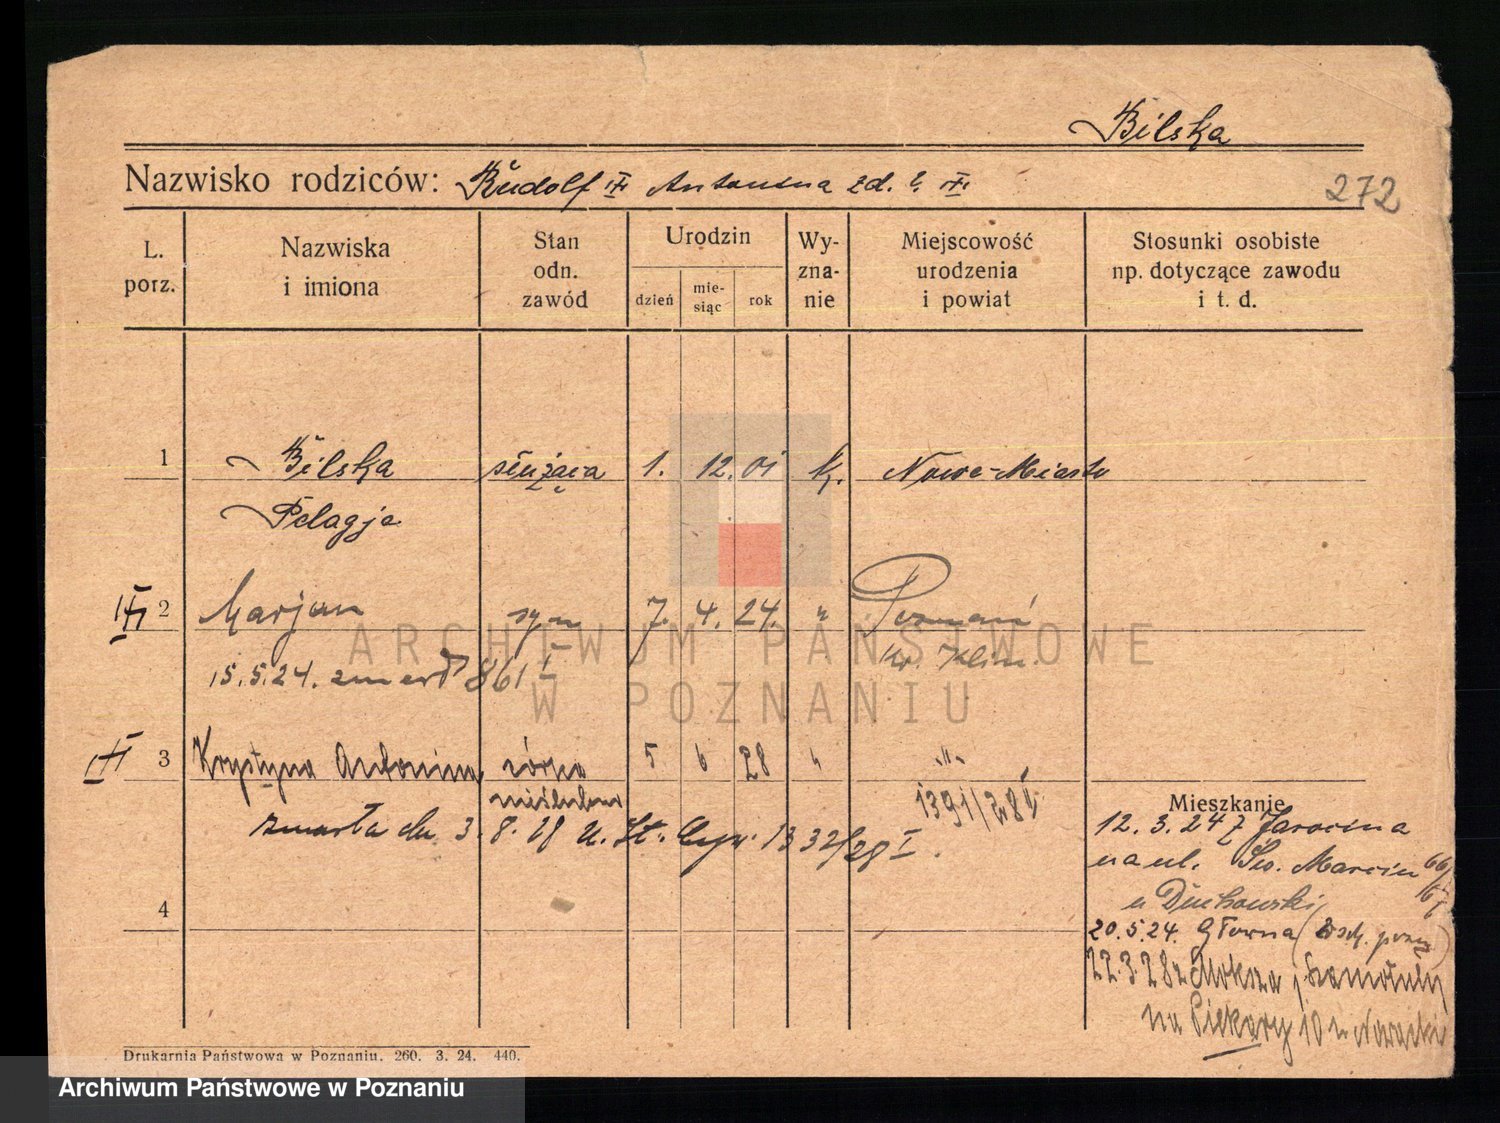 Bilska
Nazwisko rodziców: Rudolf Antonina zd.
272
L. porz.
Nazwiska i imiona
Stan odn. zawód
Urodzin
dzień
mie- siąc
rok
Wy- zna- nie
Miejscowość urodzenia i powiat
Stosunki osobiste np. dotyczące zawodu i t. d.
1 Bilska służąca 1. 12. 01 k. Nowe-Miasto
Pelagja
2 Marjan syn 7. 4. 24. " Poznań
Kr. Klin.
15.5.24. zmarł 861 I
3 Krystyna Antonina córka 5 6 28 " "
nieślubna 1391/28 I
zmarła dn. 3. 8. 28 1332/28 I.
4
Mieszkanie
12. 3. 24 z Jarocina
na ul. Św. Marcin 66/67
u Duchowski
20.5.24. Główna
22.3.28 z Szamotuły
na Piekary 10 u Nowacki
Drukarnia Państwowa w Poznaniu. 260. 3. 24. 440.
ARCHIWUM PAŃSTWOWE
W POZNANIU
Archiwum Państwowe w Poznaniu